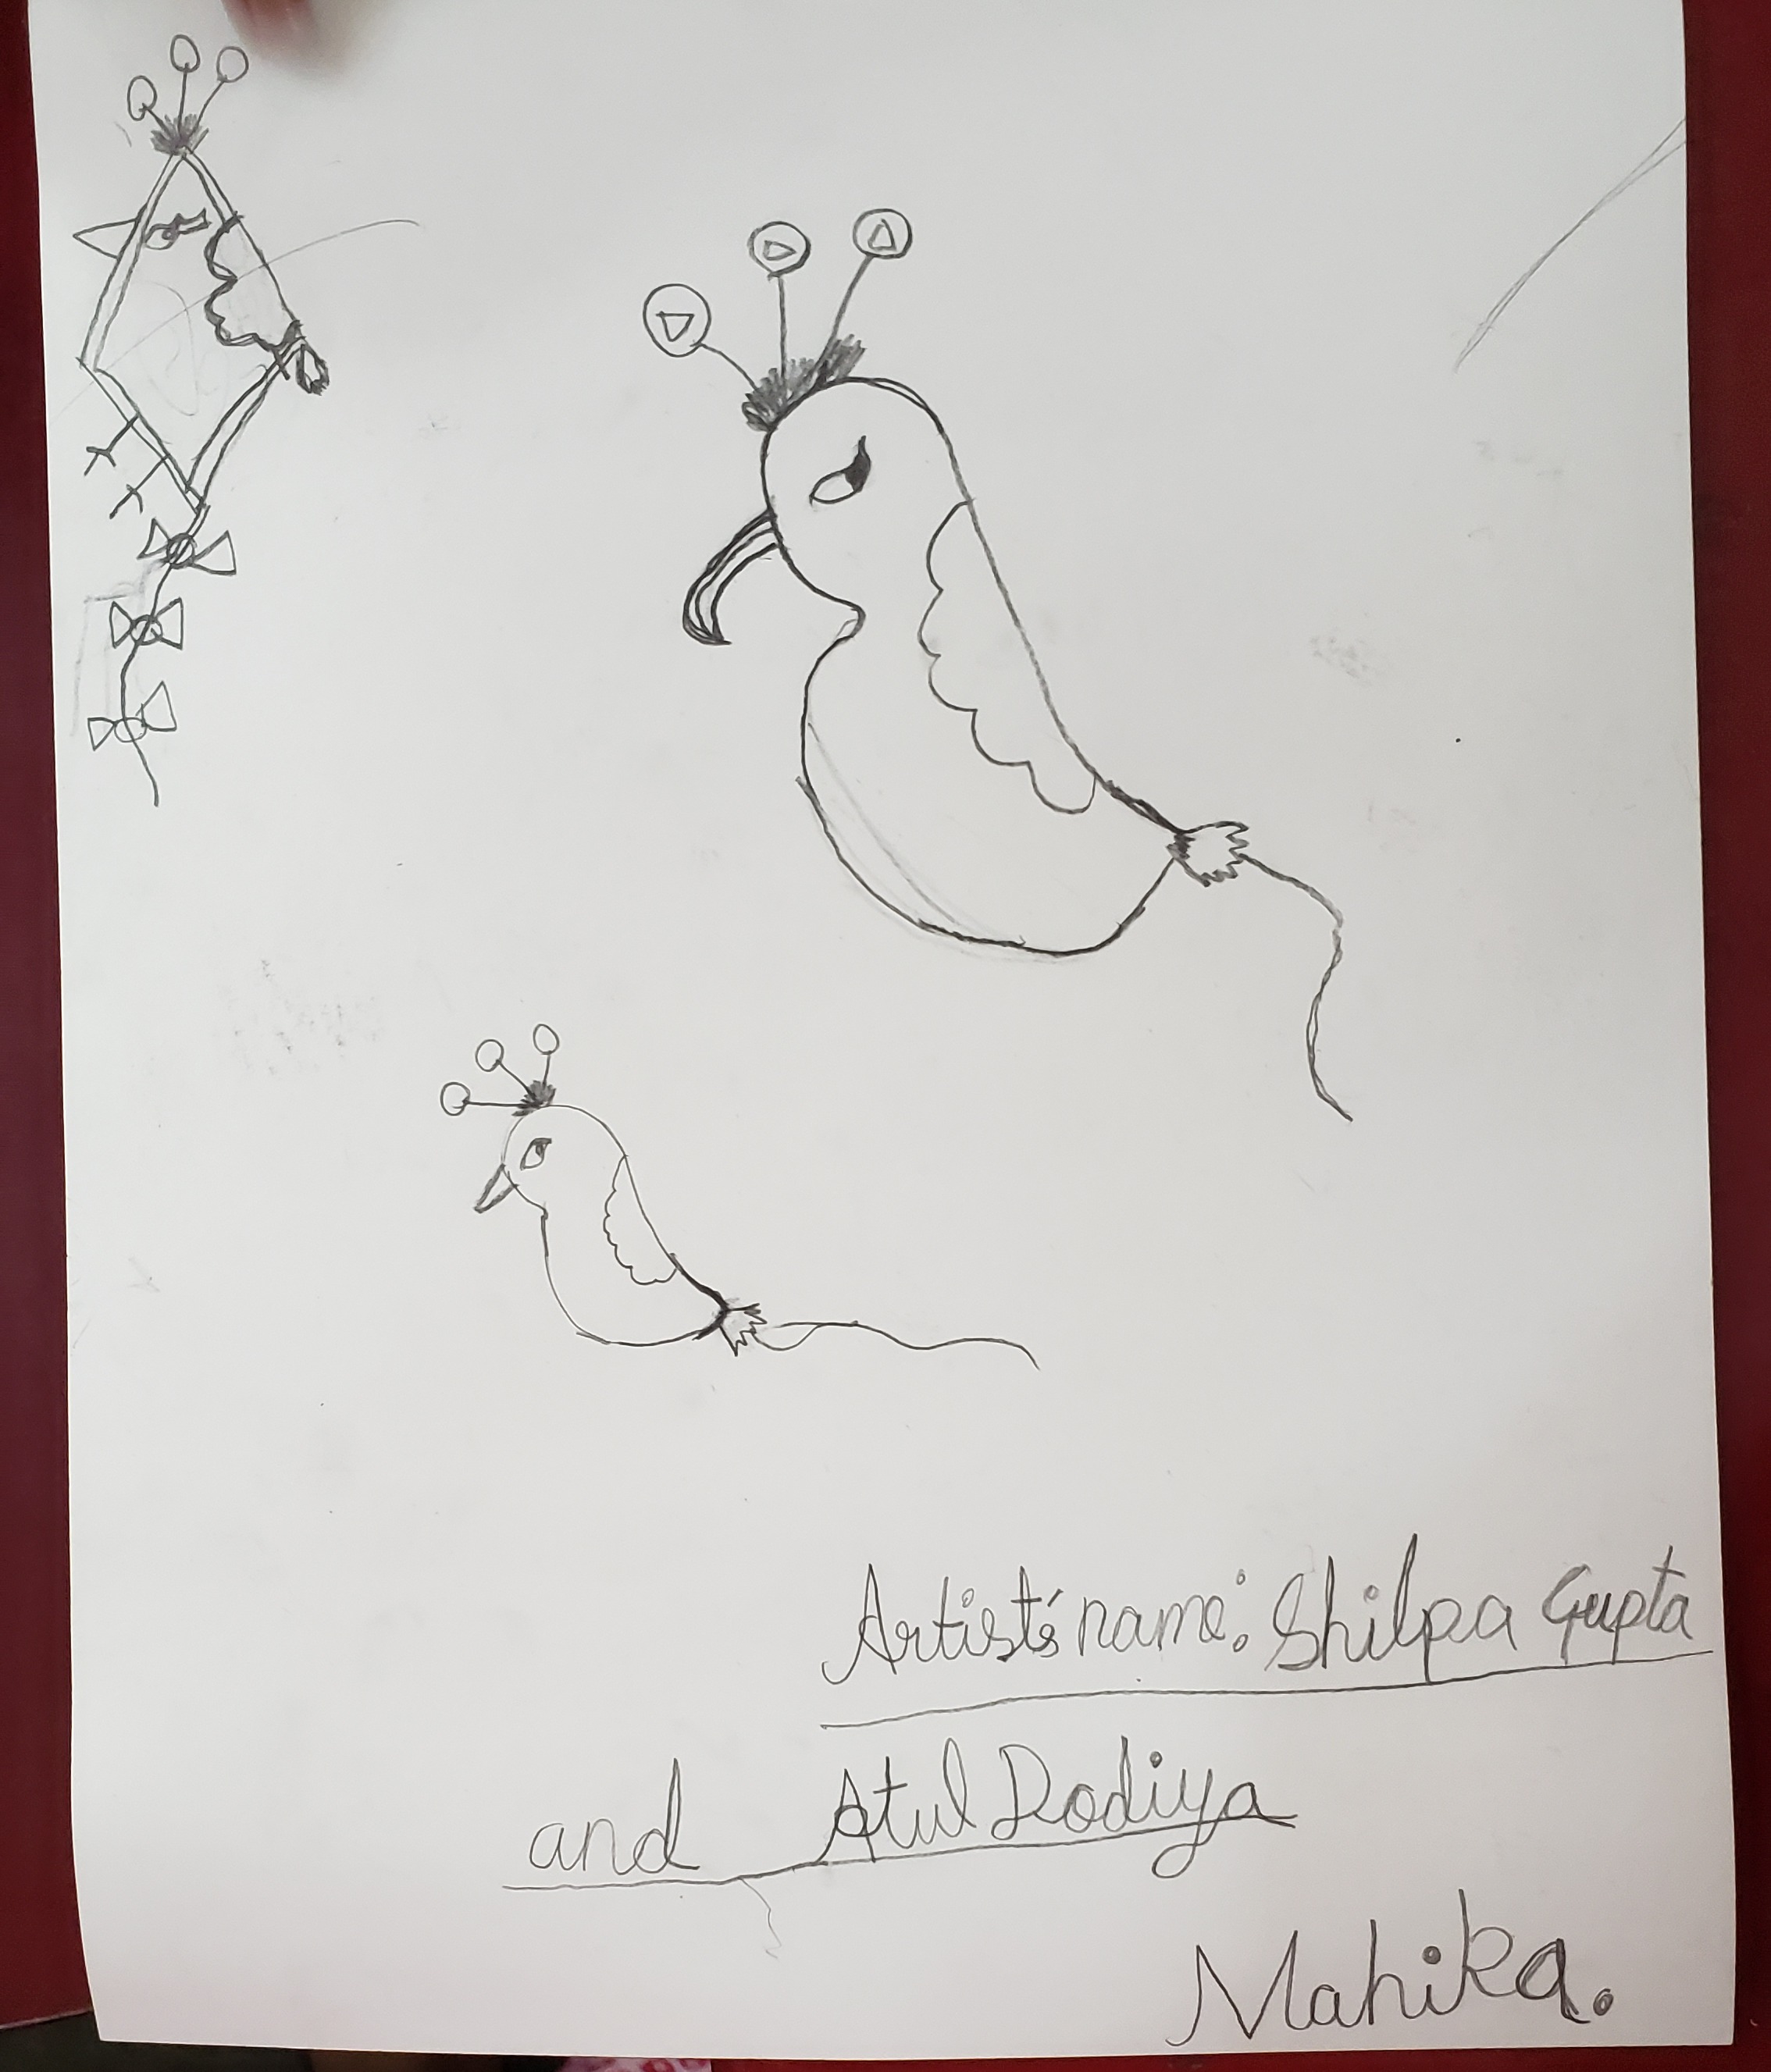 Artist's name: Shilpa Gupta
and Atul Dodiya
Mahika.